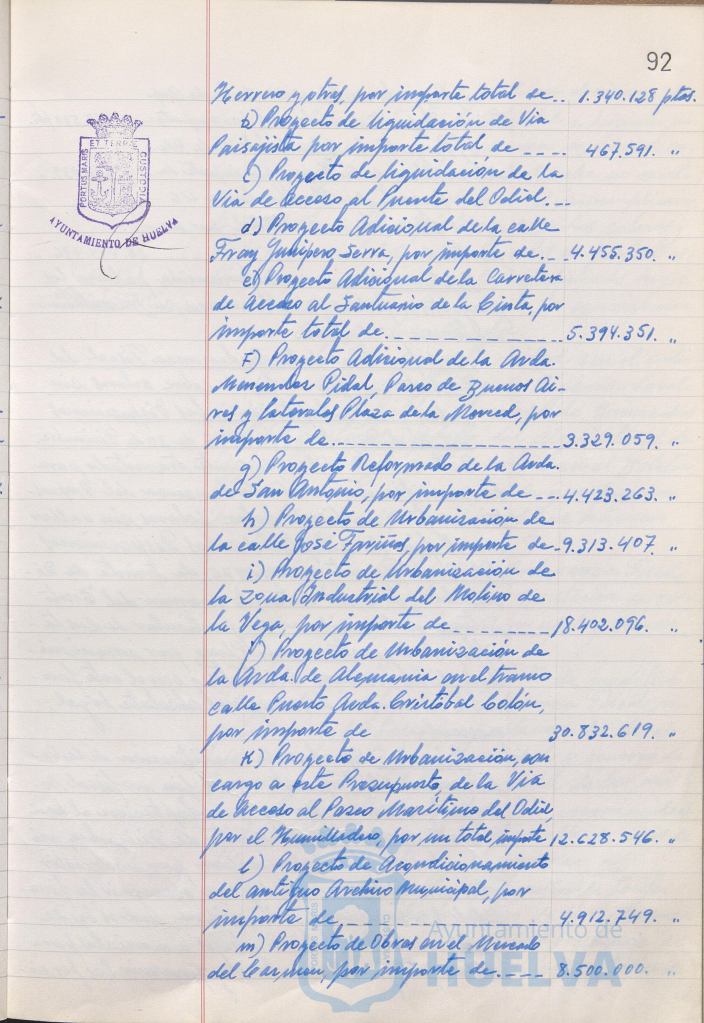 92
Herrero y otros, por importe total de.. 1.340.128 ptas.
b) Proyecto de liquidación de Via
Paisajista por importe total de ---- 467.591. "
c) Proyecto de liquidación de la
Via de acceso al Puente del Odiel.--
d) Proyecto Adicional de la calle
Fray Junipero Serra, por importe de.-- 4.455.350. "
e) Proyecto Adicional de la Carretera
de Acceso al Santuario de la Cinta, por
importe total de.------------ 5.394.351. "
F) Proyecto Adicional de la Avda.
Menendez Pidal, Paseo de Buenos Ai-
res y laterales Plaza de la Merced, por
importe de.---------------- 3.329.059. "
g) Proyecto Reformado de la Avda.
de San Antonio, por importe de --- 4.423.263. "
h) Proyecto de Urbanización de
la calle José Fariñas, por importe de - 9.313.407. "
i) Proyecto de Urbanización de
la Zona Industrial del Molino de
la Vega, por importe de -------- 18.402.096. "
j) Proyecto de Urbanización de
la Avda. de Alemania en el tramo
calle Puerto Avda. Cristóbal Colón,
por importe de 30.832.619. "
K) Proyecto de Urbanización, con
cargo a este Presupuesto, de la Via
de Acceso al Paseo Marítimo del Odiel,
por el Humilladero, por un total importe 12.628.546. "
l) Proyecto de Acondicionamiento
del antiguo Archivo Municipal, por
importe de ------------ 4.912.749. "
m) Proyecto de Obras en el Mercado
del Carmen, por importe de.---- 8.500.000. "
PORTUS MARIS ET TERRE CUSTODIA
AYUNTAMIENTO DE HUELVA
Ayuntamiento de
HUELVA